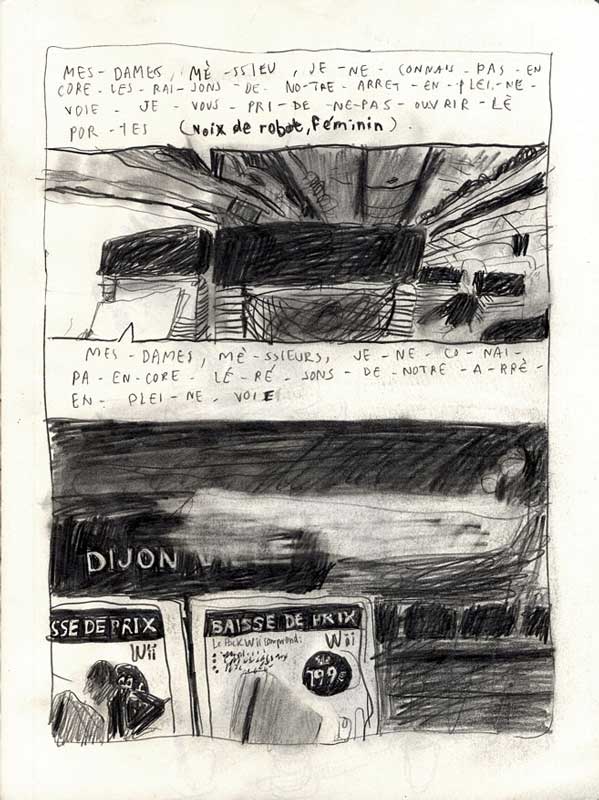 MES-DAMES, MÈ-SSIEU, JE-NE-CONNAIS-PAS-EN
CORE-LES-RAI-SONS-DE-NO-TRE-ARRET-EN-PLEI-NE-
VOIE-JE-VOUS-PRI-DE-NE-PAS-OUVRIR-LÈ
POR-TES (voix de robot, féminin).
MES-DAMES, MÈ-SSIEURS, JE-NE-CO-NAI-
PA-EN-CORE-LÉ-RÉ-SONS-DE-NOTRE-A-RRÊ-
EN-PLEI-NE-VOIE
DIJON V
SSE DE PRIX
Wii
BAISSE DE PRIX
Le Pack Wii comprend:
Wii
199€